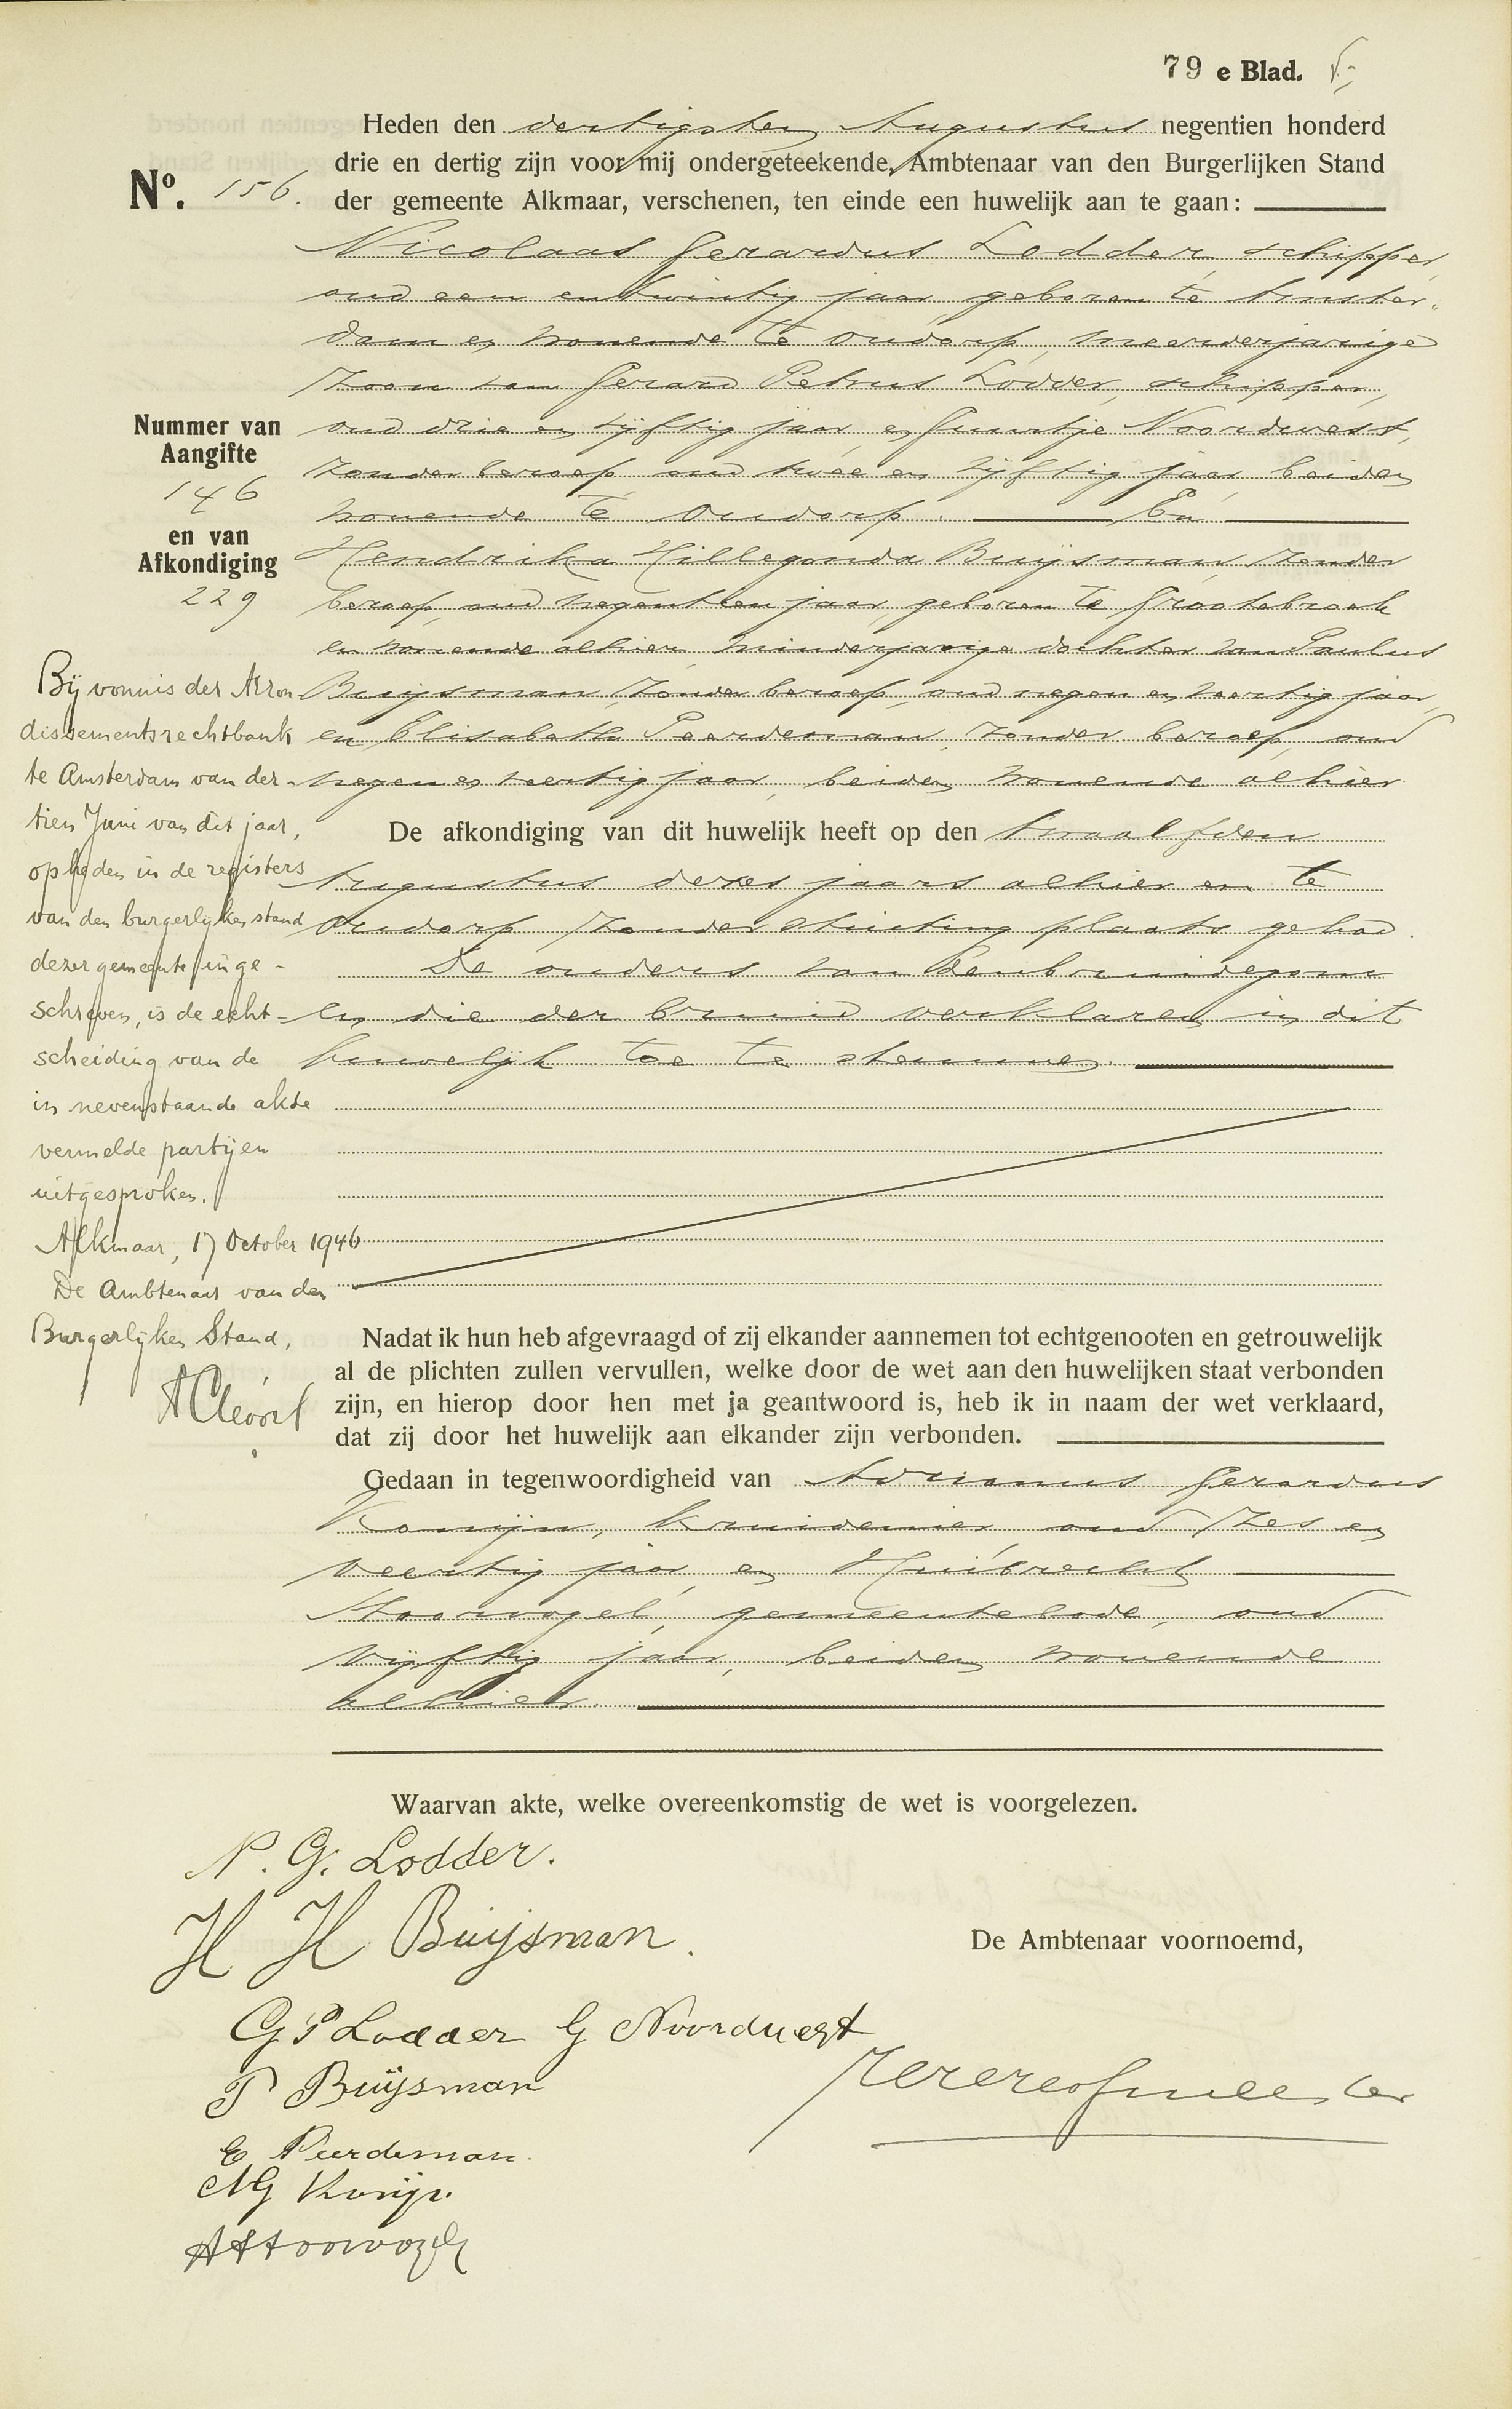 79 e Blad.
Heden den dertigsten Augustus negentien honderd
drie en dertig zijn voor mij ondergeteekende, Ambtenaar van den Burgerlijken Stand
der gemeente Alkmaar, verschenen, ten einde een huwelijk aan te gaan:
No. 156.
Nicolaas Gerardus Lodder, schipper,
oud een en twintig jaar, geboren te Amster-
dam en wonende te Oudorp, meerderjarige
zoon van Gerard Petrus Lodder, schipper,
oud drie en vijftig jaar, en Guurtje Noordwest,
zonder beroep, oud twee en vijftig jaar, beiden
wonende te Oudorp. En
Hendrika Hillegonda Buijsman, zonder
beroep, oud negentien jaar, geboren te Grootebroek
en wonende alhier, minderjarige dochter van Paulus
Buijsman, zonder beroep, oud negen en veertig jaar,
en Elisabeth Peerdeman, zonder beroep, oud
negen en veertig jaar, beiden wonende alhier.
Nummer van
Aangifte
146
en van
Afkondiging
229
De afkondiging van dit huwelijk heeft op den twaalfden
Augustus dezes jaars alhier en te
Oudorp zonder stuiting plaats gehad.
De ouders van den bruidegom
en die der bruid verklaren in dit
huwelijk toe te stemmen.
Bij vonnis der Arron-
dissementsrechtbank
te Amsterdam van der-
tien Juni van dit jaar,
op heden in de registers
van den burgerlijken stand
dezer gemeente inge-
schreven, is de echt-
scheiding van de
in nevenstaande akte
vermelde partijen
uitgesproken.
Alkmaar, 17 October 1946
De Ambtenaar van den
Burgerlijken Stand,
Nadat ik hun heb afgevraagd of zij elkander aannemen tot echtgenooten en getrouwelijk
al de plichten zullen vervullen, welke door de wet aan den huwelijken staat verbonden
zijn, en hierop door hen met ja geantwoord is, heb ik in naam der wet verklaard,
dat zij door het huwelijk aan elkander zijn verbonden.
Gedaan in tegenwoordigheid van Adrianus Gerardus
Konijn, kruidenier, oud zes en
veertig jaar, en Huibrecht
Stoorvogel, gemeentebode, oud
vijftig jaar, beiden wonende
alhier.
Waarvan akte, welke overeenkomstig de wet is voorgelezen.
N. G. Lodder.
H H Buijsman.
De Ambtenaar voornoemd,
G P Lodder G Noordwest
P Buijsman
E Peerdeman.
AG Konijn.